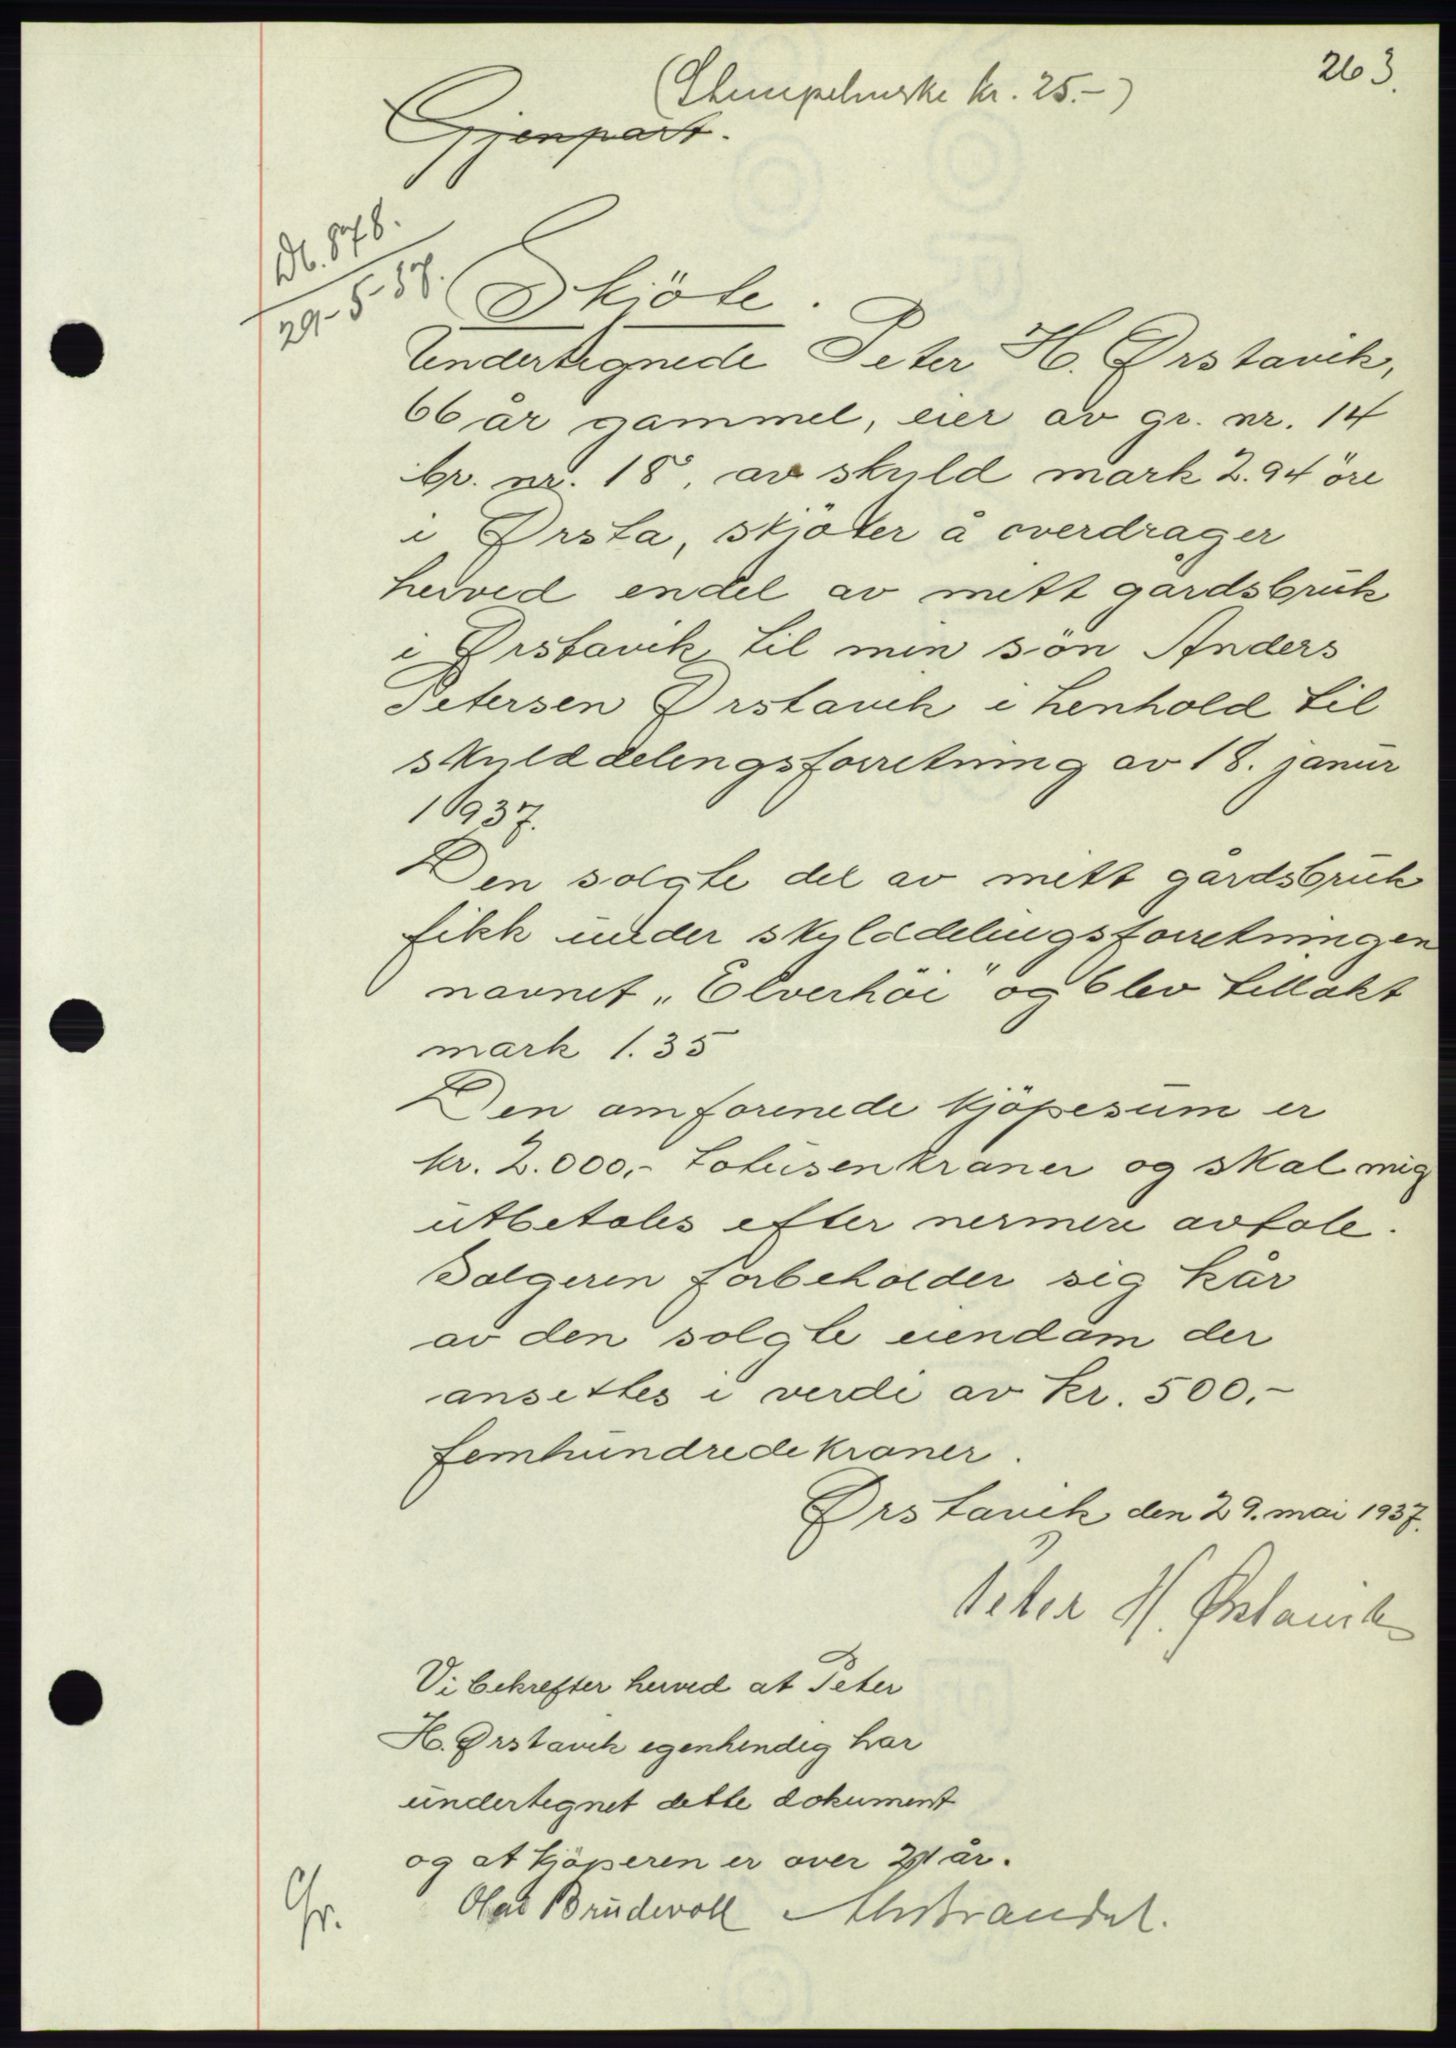 263.
(Stempelmerke kr. 25.-)
Gjenpart.
Db. 878.
29-5-37.
Skjöte.
Undertegnede Peter H. Ørstavik,
66 år gammel, eier av gr. nr. 14
br. nr. 18, av skyld mark 2.94 öre
i Ørsta, skjöter å overdrager
herved endel av mitt gårdsbruk
i Ørstavik til min sön Anders
Petersen Ørstavik i henhold til
skylddelingsforretning av 18. janur
1937.
Den solgte del av mitt gårdsbruk
fikk under skylddelingsforretningen
navnet „Elverhöi" og blev tillakt
mark 1.35
Den omforenede kjöpesum er
kr. 2.000,- totusenkroner og skal mig
utbetales efter nermere avtale.
Selgeren forbeholder sig kår
av den solgte eiendom der
ansettes i verdi av kr. 500.-
femhundredekroner.
Ørstavik den 29. mai 1937.
Peter H. Ørstavik
Vi bekrefter herved at Peter
H. Ørstavik egenhendig har
undertegnet dette dokument
og at kjöperen er over 21 år.
Olav Brudevoll